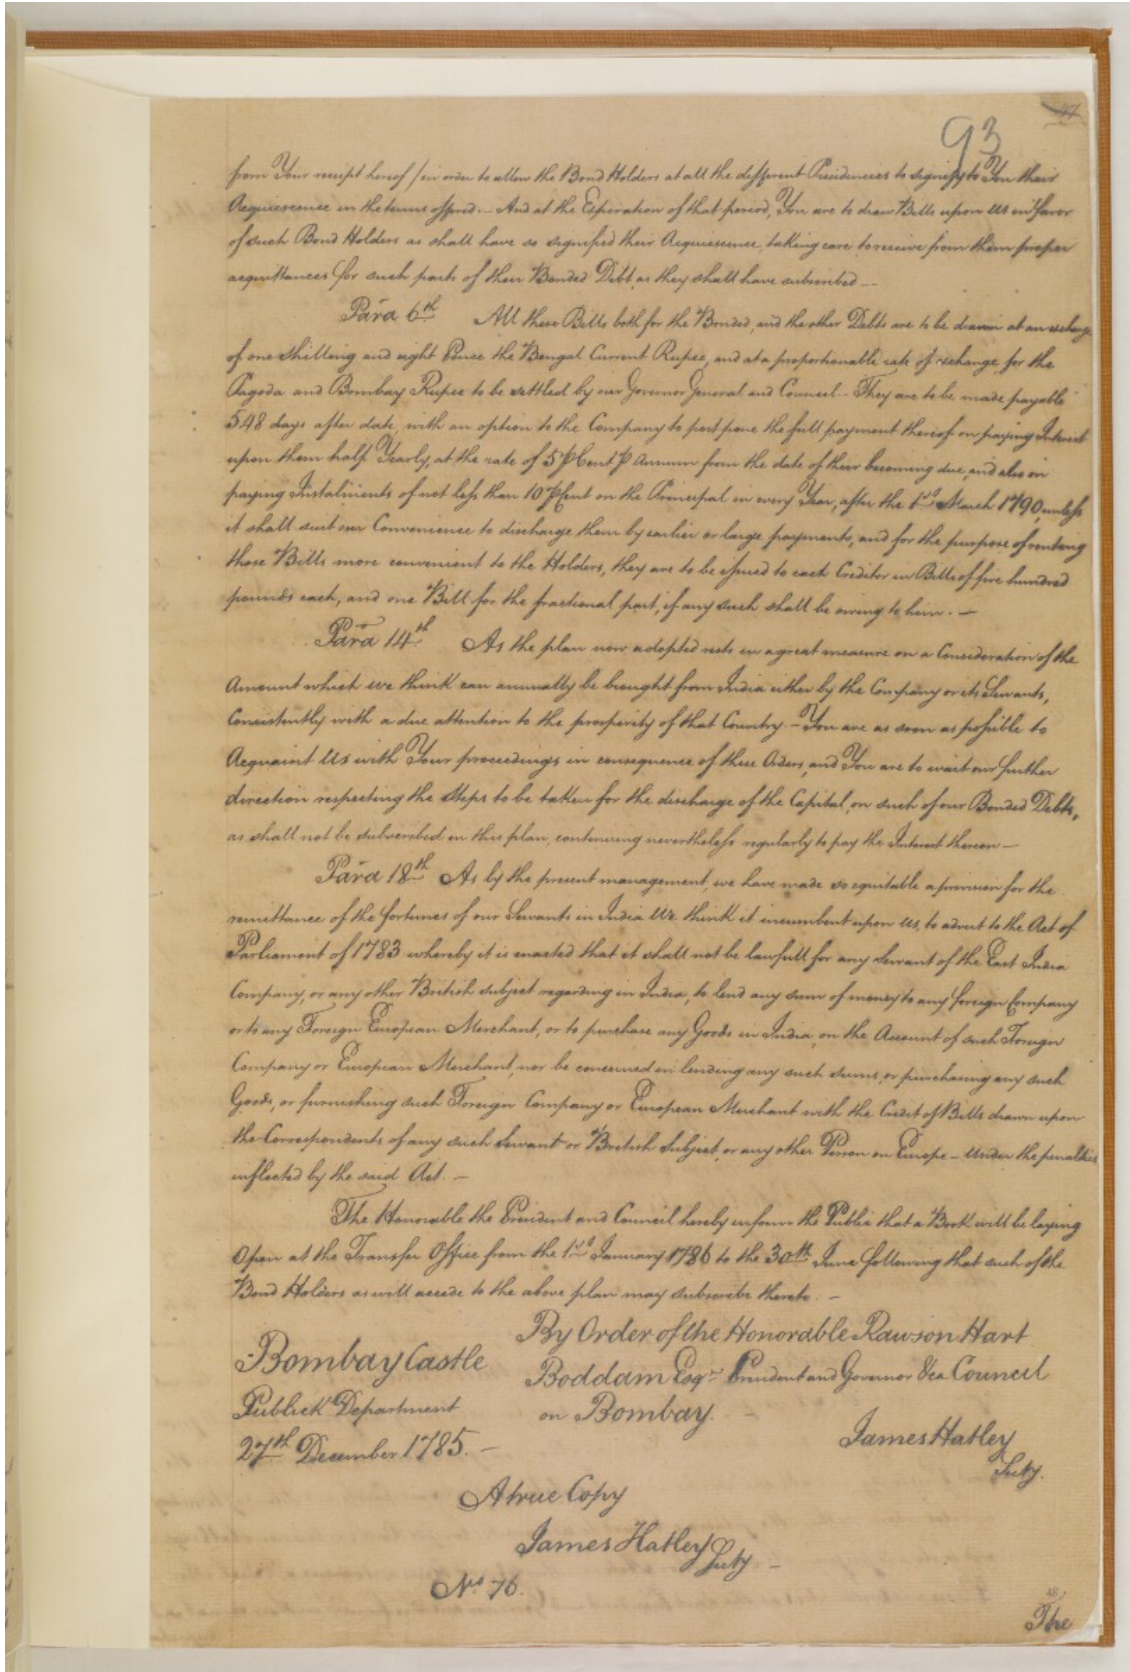 93
47
from Your receipt hereof /in order to allow the Bond Holders at all the different Presidencies to signify to You their
Acquiescence in the terms offered. – And at the Expiration of that period, You are to draw Bills upon us in favor
of such Bond Holders as shall have so signified their Acquiescence, taking care to receive from them proper
acquittances for such parts of their Bonded Debt as they shall have subscribed –
Para 6th All these Bills both for the Bonded, and the other Debts are to be drawn at an exchange
of one shilling and eight Pence the Bengal Current Rupee, and at a proportionable rate of exchange for the
Pagoda and Bombay Rupee to be settled by our Governor General and Council – They are to be made payable
548 days after date, with an option to the Company to postpone the full payment thereof on paying Interest
upon them half Yearly, at the rate of 5 P Cent P Annum from the date of their becoming due, and also on
paying Instalments of not less than 10 P Cent on the Principal in every Year, after the 1st March 1790, unless
it shall suit our Convenience to discharge them by earlier or large payments, and for the purpose of rendering
those Bills more convenient to the Holders, they are to be issued to each Creditor in Bills of five hundred
pounds each, and one Bill for the fractional part, if any such shall be owing to him. –
Para 14th As the plan now adopted rests in a great measure on a Consideration of the
Amount which we think can annually be brought from India either by the Company or its Servants,
Consistently with a due attention to the prosperity of that Country – You are as soon as possible to
Acquaint us with Your proceedings in consequence of these Orders, and You are to wait our further
direction respecting the Steps to be taken for the discharge of the Capital, on such of our Bonded Debts,
as shall not be subscribed in this plan, continuing nevertheless regularly to pay the Interest thereon –
Para 18th As by the present management, we have made so equitable a provision for the
remittance of the fortunes of our Servants in India We think it incumbent upon us, to advert to the Act of
Parliament of 1783 whereby it is enacted that it shall not be lawfull for any Servant of the East India
Company, or any other British subject regarding in India, to lend any sum of money to any foreign Company
or to any Foreign European Merchant, or to purchase any Goods in India, on the Account of such Foreign
Company or European Merchant, nor be concerned in lending any such sums, or purchasing any such
Goods, or furnishing such Foreign Company or European Merchant with the Credit of Bills drawn upon
the Correspondents of any such Servant or British Subject, or any other Person on Europe – under the penalties
inflected by the said Act. –
The Honorable the President and Council hereby inform the Public that a Book will be laying
Open at the Transfer Office from the 1st January 1786 to the 30th June following that such of the
Bond Holders as will accede to the above plan may subscribe thereto. –
By Order of the Honorable Rawson Hart
Boddam Esqr President and Governor &ca Council
on Bombay. –
Bombay Castle
Publick Department
27th December 1785. –
James Hatley
Secty.
A true Copy
James Hatley Secty –
No 76.
48
The